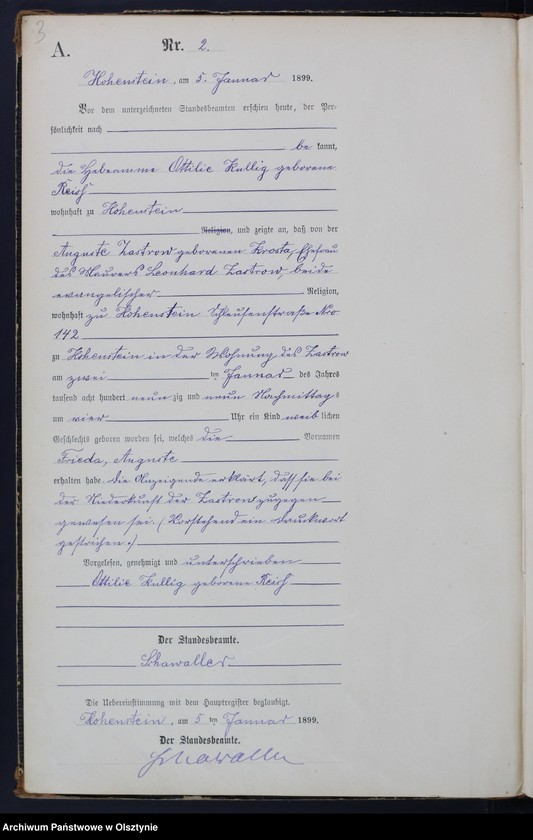 3
A.
Nr. 2.
Hohenstein, am 5. Januar 1899.
Vor dem unterzeichneten Standesbeamten erschien heute, der Per-
sönlichkeit nach
be kannt,
die Hebeamme Ottilie Kullig geborene
Reich
wohnhaft zu Hohenstein
Religion, und zeigte an, daß von der
Auguste Zastrow geborenen Krosta, Ehefrau
des Maurers Leonhard Zastrow, beide
evangelischer Religion,
wohnhaft zu Hohenstein Schleusenstraße No
142
zu Hohenstein in der Wohnung des Zastrow
am zwei ten Januar des Jahres
tausend acht hundert neun zig und neun Nachmittags
um vier Uhr ein Kind weib lichen
Geschlechts geboren worden sei, welches die Vornamen
Frieda, Auguste
erhalten habe. Die Anzeigende erklärt, daß sie bei
der Niederkunft der Zastrow zugegen
gewesen sei. (Vorstehend ein Druckwort
gestrichen.)
Vorgelesen, genehmigt und unterschrieben
Ottilie Kullig geborene Reich
Der Standesbeamte.
Schawaller
Die Uebereinstimmung mit dem Hauptregister beglaubigt.
Hohenstein, am 5 ten Januar 1899.
Der Standesbeamte.
Schawaller
Archiwum Państwowe w Olsztynie